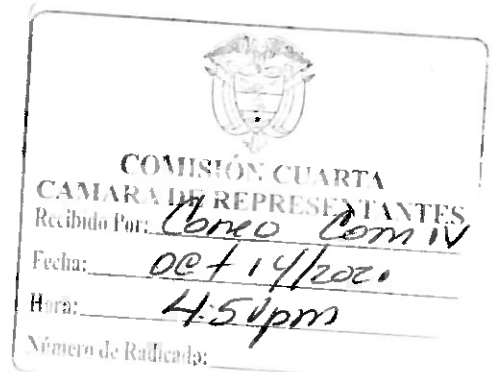 COMISIÓN CUARTA
CAMARA DE REPRESENTANTES
Recibido Por: Correo Com IV
Fecha: Oct 14/202
Hora: 4:5 pm
Número de Radicado: